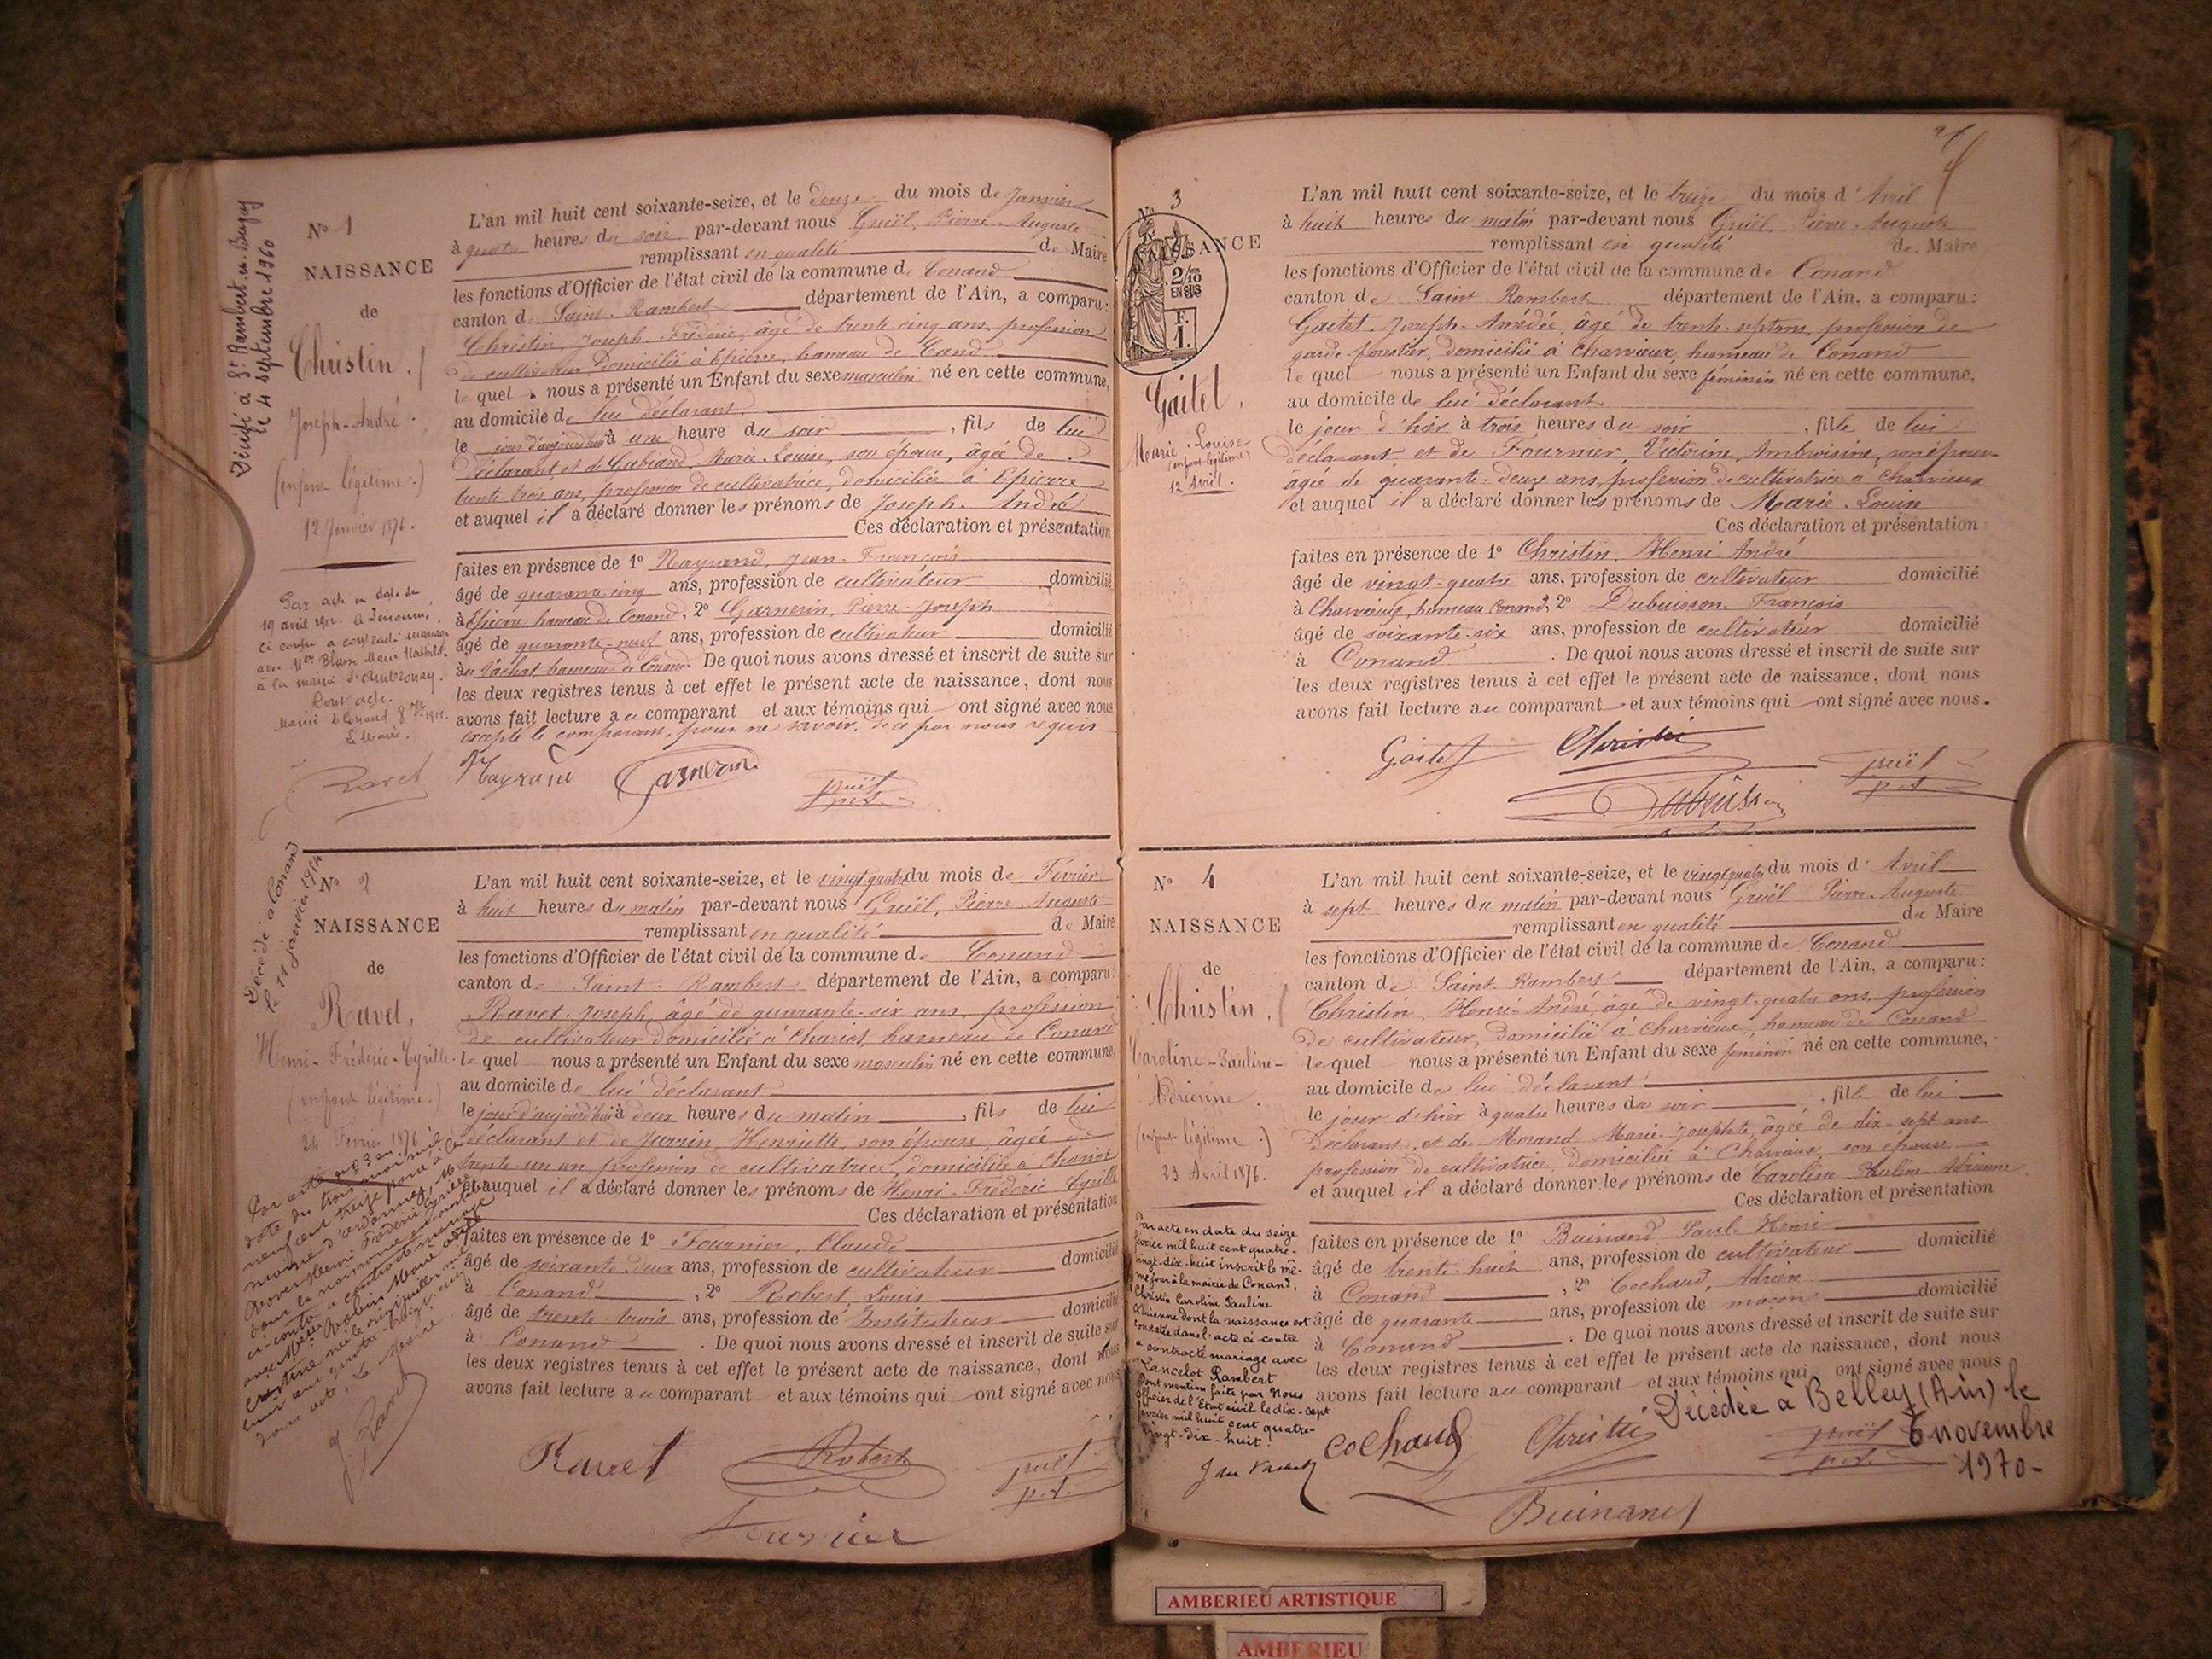 Décédé à St Rambert-en-Bugey
le 4 septembre 1960
N° 1
NAISSANCE
de
Christin.
Joseph-André.
(enfant légitime.)
12 Janvier 1876.
Par acte en date du
19 avril
ce conju a contracté mariage
avec Mlle Marie
à la mairie d'Ambronay.
Dont acte.
Mairie de Conand
Le Maire.
Ravet
L'an mil huit cent soixante-seize, et le douze du mois de Janvier
à quatre heures du soir par-devant nous Gruël, Pierre-Auguste
remplissant en qualité de Maire
les fonctions d'Officier de l'état civil de la commune de Conand
canton de Saint-Rambert département de l'Ain, a comparu:
Christin, Joseph-Frédéric, âgé de trente cinq ans, profession
de cultivateur Domicilié à Epierre, hameau de Conand
lequel nous a présenté un Enfant du sexe masculin né en cette commune,
au domicile de lui déclarant.
le jour d'aujourd'hui à une heure du soir, fils de lui
déclarant et de Cubiand, Marie-Louise, son épouse, âgée de
trente trois ans, profession de cultivatrice, domiciliée à Epierre
et auquel il a déclaré donner les prénoms de Joseph-André
Ces déclaration et présentation
faites en présence de 1° Nayrand, Jean-François
âgé de quarante cinq ans, profession de cultivateur domicilié
à Epierre hameau de Conand; 2° Garnerin, Pierre-Joseph
âgé de quarante-neuf ans, profession de cultivateur domicilié
au Vachat hameau de Conand. De quoi nous avons dressé et inscrit de suite sur
les deux registres tenus à cet effet le présent acte de naissance, dont nous
avons fait lecture au comparant et aux témoins qui ont signé avec nous
excepté le comparant, pour ne savoir, de ce par nous requis
Nayrand Garnerin Gruël
Décédé à Conand
le 11 janvier 1954
N° 2
NAISSANCE
de
Ravet,
Henri-Frédéric-Cyrille.
(enfant légitime.)
24 Février 1876
Par acte n° 3 en
date du trois mai mil
neuf cent treize passé à la
mairie d'
Ravet Henri Frédéric Cyrille
dont la naissance
ci-contre a contracté mariage
avec Marie
née le
dont acte, Le Maire
J. Ravet
L'an mil huit cent soixante-seize, et le vingt quatre du mois de Février
à huit heures du matin par-devant nous Gruël, Pierre-Auguste
remplissant en qualité de Maire
les fonctions d'Officier de l'état civil de la commune de Conand
canton de Saint-Rambert département de l'Ain, a comparu:
Ravet, Joseph, âgé de quarante-six ans, profession
de cultivateur domicilié à Chariot, hameau de Conand
lequel nous a présenté un Enfant du sexe masculin né en cette commune,
au domicile de lui déclarant
le jour d'aujourd'hui à deux heures du matin, fils de lui
déclarant et de Jurrin, Henriette son épouse, âgée de
trente-un an, profession de cultivatrice, domiciliée à Chariot
et auquel il a déclaré donner les prénoms de Henri-Frédéric Cyrille
Ces déclaration et présentation
faites en présence de 1° Fournier, Claude
âgé de soixante deux ans, profession de cultivateur domicilié
à Conand, 2° Robert, Louis
âgé de trente trois ans, profession de Instituteur domicilié
à Conand. De quoi nous avons dressé et inscrit de suite sur
les deux registres tenus à cet effet le présent acte de naissance, dont nous
avons fait lecture au comparant et aux témoins qui ont signé avec nous
Ravet Robert Gruël
Fournier
N° 3
NAISSANCE
Gaitet.
Marie-Louise
(enfant légitime)
12 Avril.
L'an mil huit cent soixante-seize, et le treize du mois d'Avril
à huit heures du matin par-devant nous Gruël, Pierre-Auguste
remplissant en qualité de Maire
les fonctions d'Officier de l'état civil de la commune de Conand
canton de Saint Rambert département de l'Ain, a comparu:
Gaitet, Joseph-Amédée, âgé de trente-sept ans, profession de
garde-forestier, domicilié à Charvieux, hameau de Conand
lequel nous a présenté un Enfant du sexe féminin né en cette commune,
au domicile de lui déclarant.
le jour d'hier à trois heures du soir, fille de lui
déclarant et de Fournier, Victorine, Ambroisine, son épouse
âgée de quarante-deux ans, profession de cultivatrice à Charvieux
et auquel il a déclaré donner les prénoms de Marie-Louise
Ces déclaration et présentation
faites en présence de 1° Christin, Henri André
âgé de vingt-quatre ans, profession de cultivateur domicilié
à Charvieux, hameau Conand, 2° Dubuisson, François
âgé de soixante-six ans, profession de cultivateur domicilié
à Conand. De quoi nous avons dressé et inscrit de suite sur
les deux registres tenus à cet effet le présent acte de naissance, dont nous
avons fait lecture au comparant et aux témoins qui ont signé avec nous.
Gaitet Christin Gruël
Dubuisson
N° 4
NAISSANCE
de
Christin.
Caroline-Pauline-
Adrienne.
(enfant légitime.)
23 Avril 1876.
Par acte en date du seize
février mil huit cent quatre-
vingt-dix-huit inscrit le mê-
me jour à la mairie de Conand,
Christin Caroline Pauline
Adrienne dont la naissance est
constatée dans l'acte ci-contre
a contracté mariage avec
Lancelot Rambert
Dont mention faite par Nous
officier de l'Etat civil le dix-sept
février mil huit cent quatre-
vingt-dix-huit.
L'an mil huit cent soixante-seize, et le vingt quatre du mois d'Avril
à sept heures du matin par-devant nous Gruël Pierre-Auguste
remplissant en qualité de Maire
les fonctions d'Officier de l'état civil de la commune de Conand
canton de Saint Rambert département de l'Ain, a comparu:
Christin, Henri-André, âgé de vingt-quatre ans, profession
de cultivateur, domicilié à Charvieux, hameau de Conand
lequel nous a présenté un Enfant du sexe féminin né en cette commune,
au domicile de lui déclarant
le jour d'hier à quatre heures du soir, fille de lui
Déclarant, et de Morand Marie-Josephte, âgée de dix-sept ans
profession de cultivatrice, domiciliée à Charvieux, son épouse
et auquel il a déclaré donner les prénoms de Caroline Pauline-Adrienne
Ces déclaration et présentation
faites en présence de 1° Buinand Paul-Henri
âgé de trente-huit ans, profession de cultivateur domicilié
à Conand, 2° Cochaud, Adrien
âgé de quarante ans, profession de maçon domicilié
à Conand. De quoi nous avons dressé et inscrit de suite sur
les deux registres tenus à cet effet le présent acte de naissance, dont nous
avons fait lecture au comparant et aux témoins qui ont signé avec nous
Décédée à Belley (Ain) le
6 novembre
1970-
Cochaud Christin Gruël
Buinand
AMBERIEU ARTISTIQUE
AMBERIEU